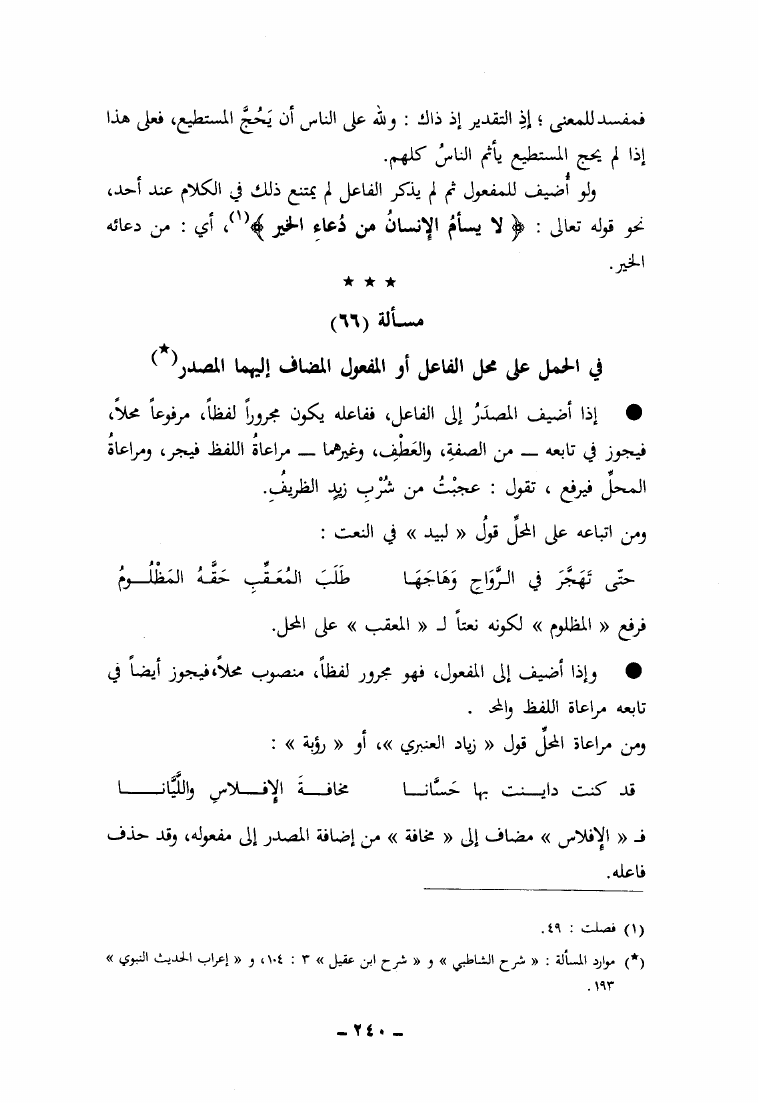 فمفسد للمعنى ؛ إذِ التقدير إذ ذاك : ولله على الناس أن يَحُجَّ المستطيع، فعلى هذا
إذا لم يحج المستطيع يأثم الناسُ كلهم.
ولو أُضيف للمفعول ثم لم يذكر الفاعل لم يمتنع ذلك في الكلام عند أحد،
نحو قوله تعالى : ﴿ لا يسأمُ الإنسانُ من دُعاءِ الخير ﴾(١)، أي : من دعائه
الخير.
★ ★ ★
مسألة (٦٦)
في الحمل على محل الفاعل أو المفعول المضاف إليهما المصدر(★)
● إذا أضيف المصدَرُ إلى الفاعل، ففاعله يكون مجروراً لفظاً، مرفوعاً محلاً،
فيجوز في تابعه — من الصفةِ، والعَطْفِ، وغيرهما — مراعاةُ اللفظ فيجر، ومراعاةُ
المحلِّ فيرفع ، تقول : عجبْتُ من شُرْبِ زيدٍ الظريفُِ.
ومن اتباعه على المحلِّ قولُ « لبيد » في النعت :
حتّى تَهَجَّرَ في الرَّوَاحِ وَهَاجَهَا طَلَبَ المُعَقِّبِ حَقَّهُ المَظْلُومُ
فرفع « المظلوم » لكونه نعتاً لـ « المعقب » على المحل.
● وإذا أضيف إلى المفعول، فهو مجرور لفظاً، منصوب محلاً،فيجوز أيضاً في
تابعه مراعاة اللفظ والمحـ .
ومن مراعاة المحلِّ قول « زياد العنبري »، أو « رؤبة » :
قد كنت داينت بها حَسَّانا مخافةَ الإفلاسِ واللَّيَّانا
فـ « الإفلاس » مضاف إلى « مخافة » من إضافة المصدر إلى مفعوله، وقد حذف
فاعله.
(١) فصلت : ٤٩.
(★) موارد المسألة : « شرح الشاطبي » و « شرح ابن عقيل » ٣ : ١٠٤، و « إعراب الحديث النبوي »
١٩٣.
- ٢٤٠ -